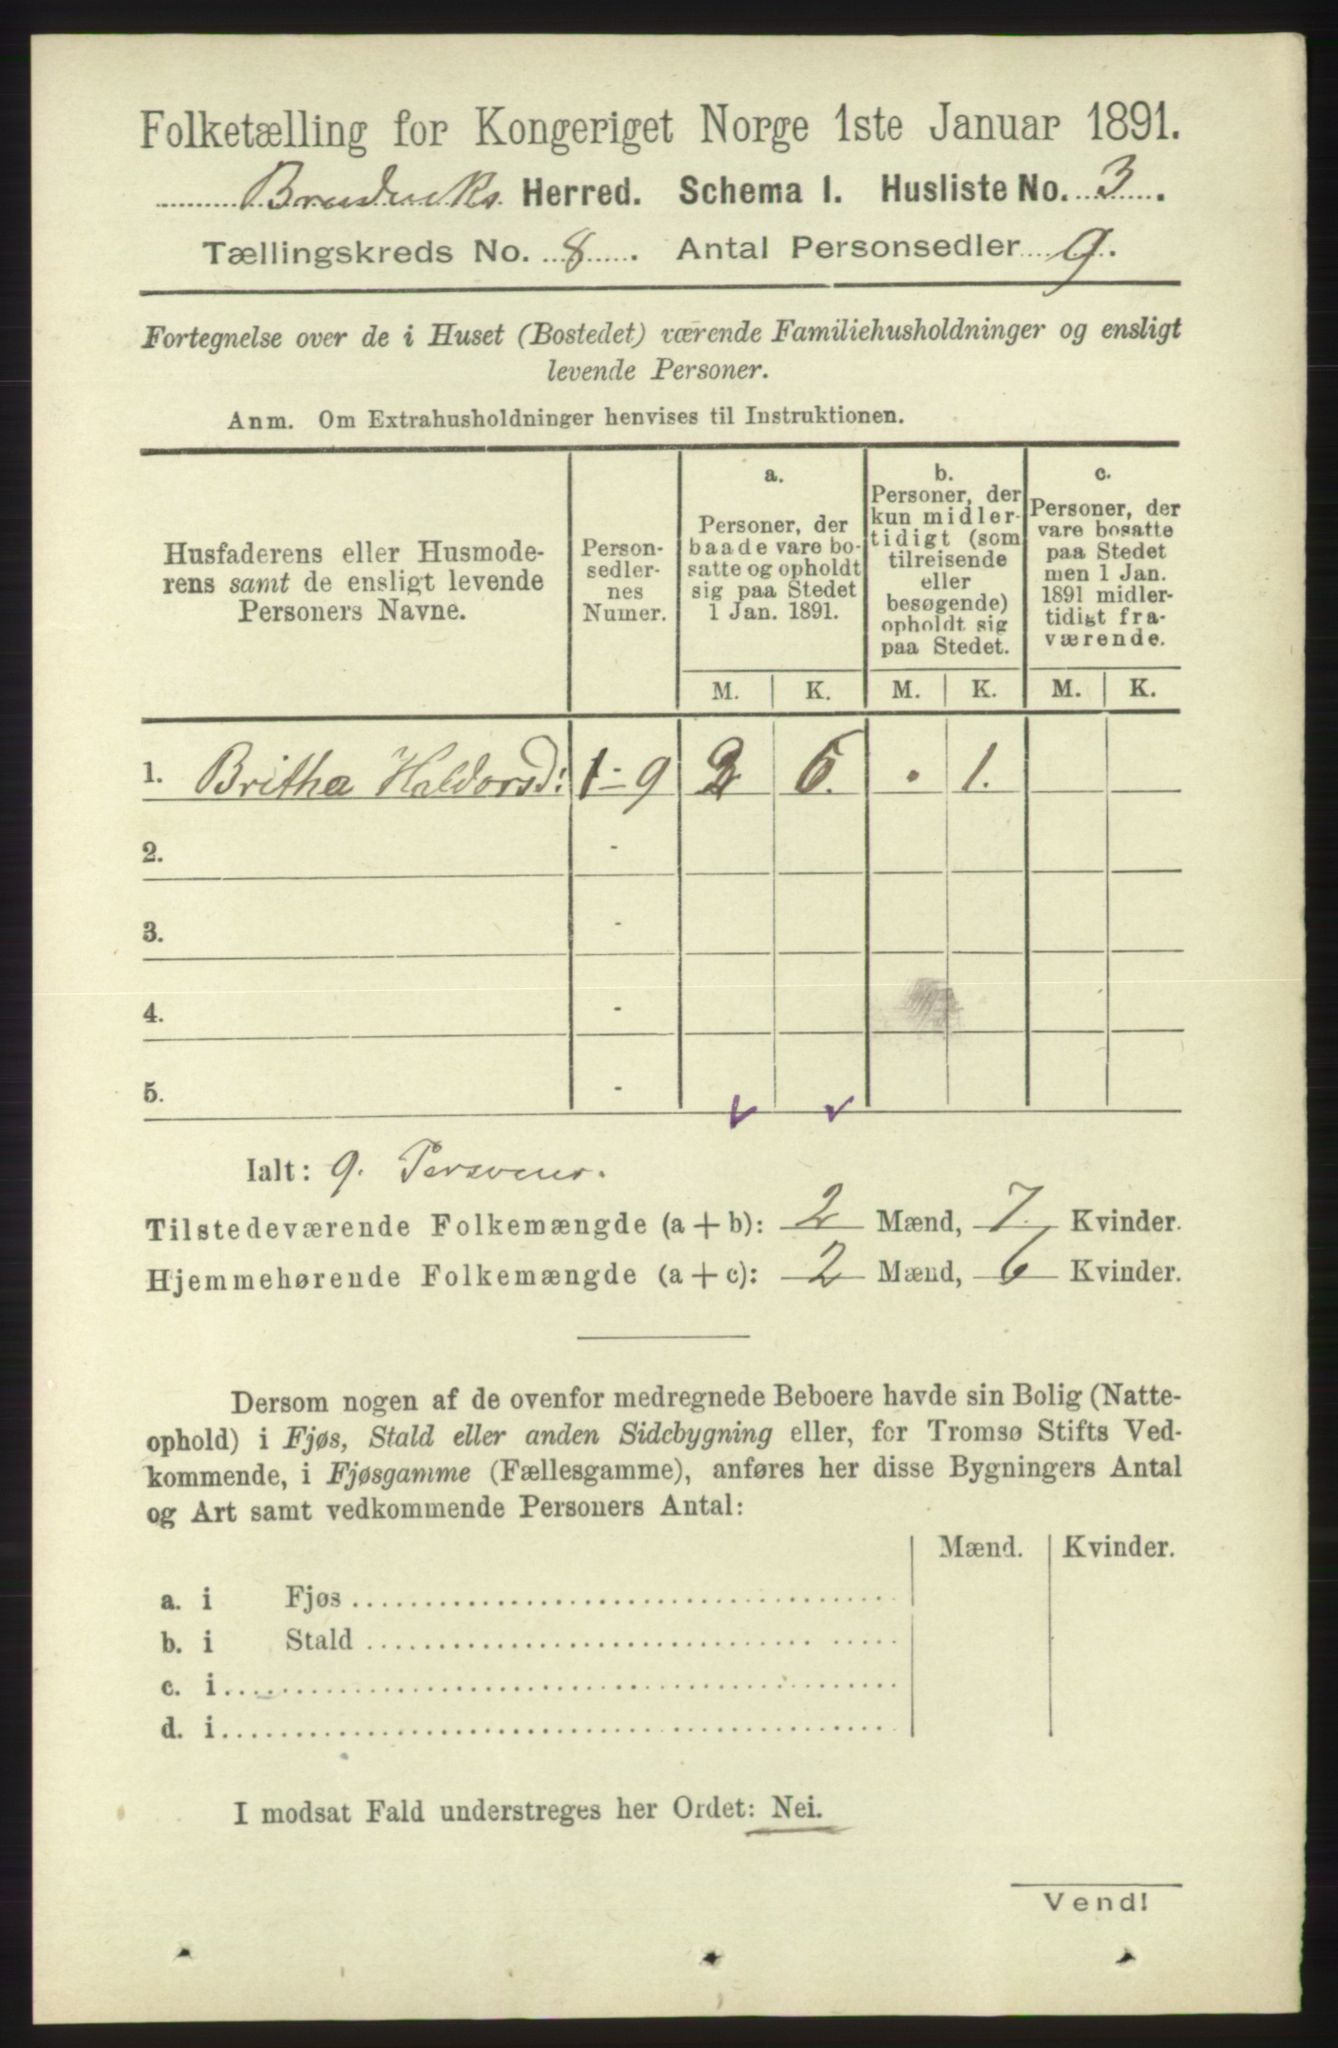 Folketælling for Kongeriget Norge 1ste Januar 1891.
Herred. Schema 1. Husliste No. 3.
Tællingskreds No. 8. Antal Personsedler 9.
Fortegnelse over de i Huset (Bostedet) værende Familiehusholdninger og ensligt
levende Personer.
Anm. Om Extrahusholdninger henvises til Instruktionen.
Husfaderens eller Husmode-
rens samt de ensligt levende
Personers Navne.
Person-
sedler-
nes
Numer.
a.
Personer, der
baade vare bo-
satte og opholdt
sig paa Stedet
1 Jan. 1891.
b.
Personer, der
kun midler-
tidigt (som
tilreisende
eller
besøgende)
opholdt sig
paa Stedet.
c.
Personer, der
vare bosatte
paa Stedet
men 1 Jan.
1891 midler-
tidigt fra-
værende.
M. K. M. K. M. K.
1. Britha Haldorsd: 1-9 2 6. . 1.
2. -
3. -
4. -
5. -
Ialt: 9. Personer.
Tilstedeværende Folkemængde (a + b): 2 Mænd, 7. Kvinder.
Hjemmehørende Folkemængde (a + c): 2 Mænd, 6 Kvinder.
Dersom nogen af de ovenfor medregnede Beboere havde sin Bolig (Natte-
ophold) i Fjøs, Stald eller anden Sidebygning eller, for Tromsø Stifts Ved-
kommende, i Fjøsgamme (Fællesgamme), anføres her disse Bygningers Antal
og Art samt vedkommende Personers Antal:
Mænd. Kvinder.
a. i Fjøs
b. i Stald
c. i
d. i
I modsat Fald understreges her Ordet: Nei.
Vend!